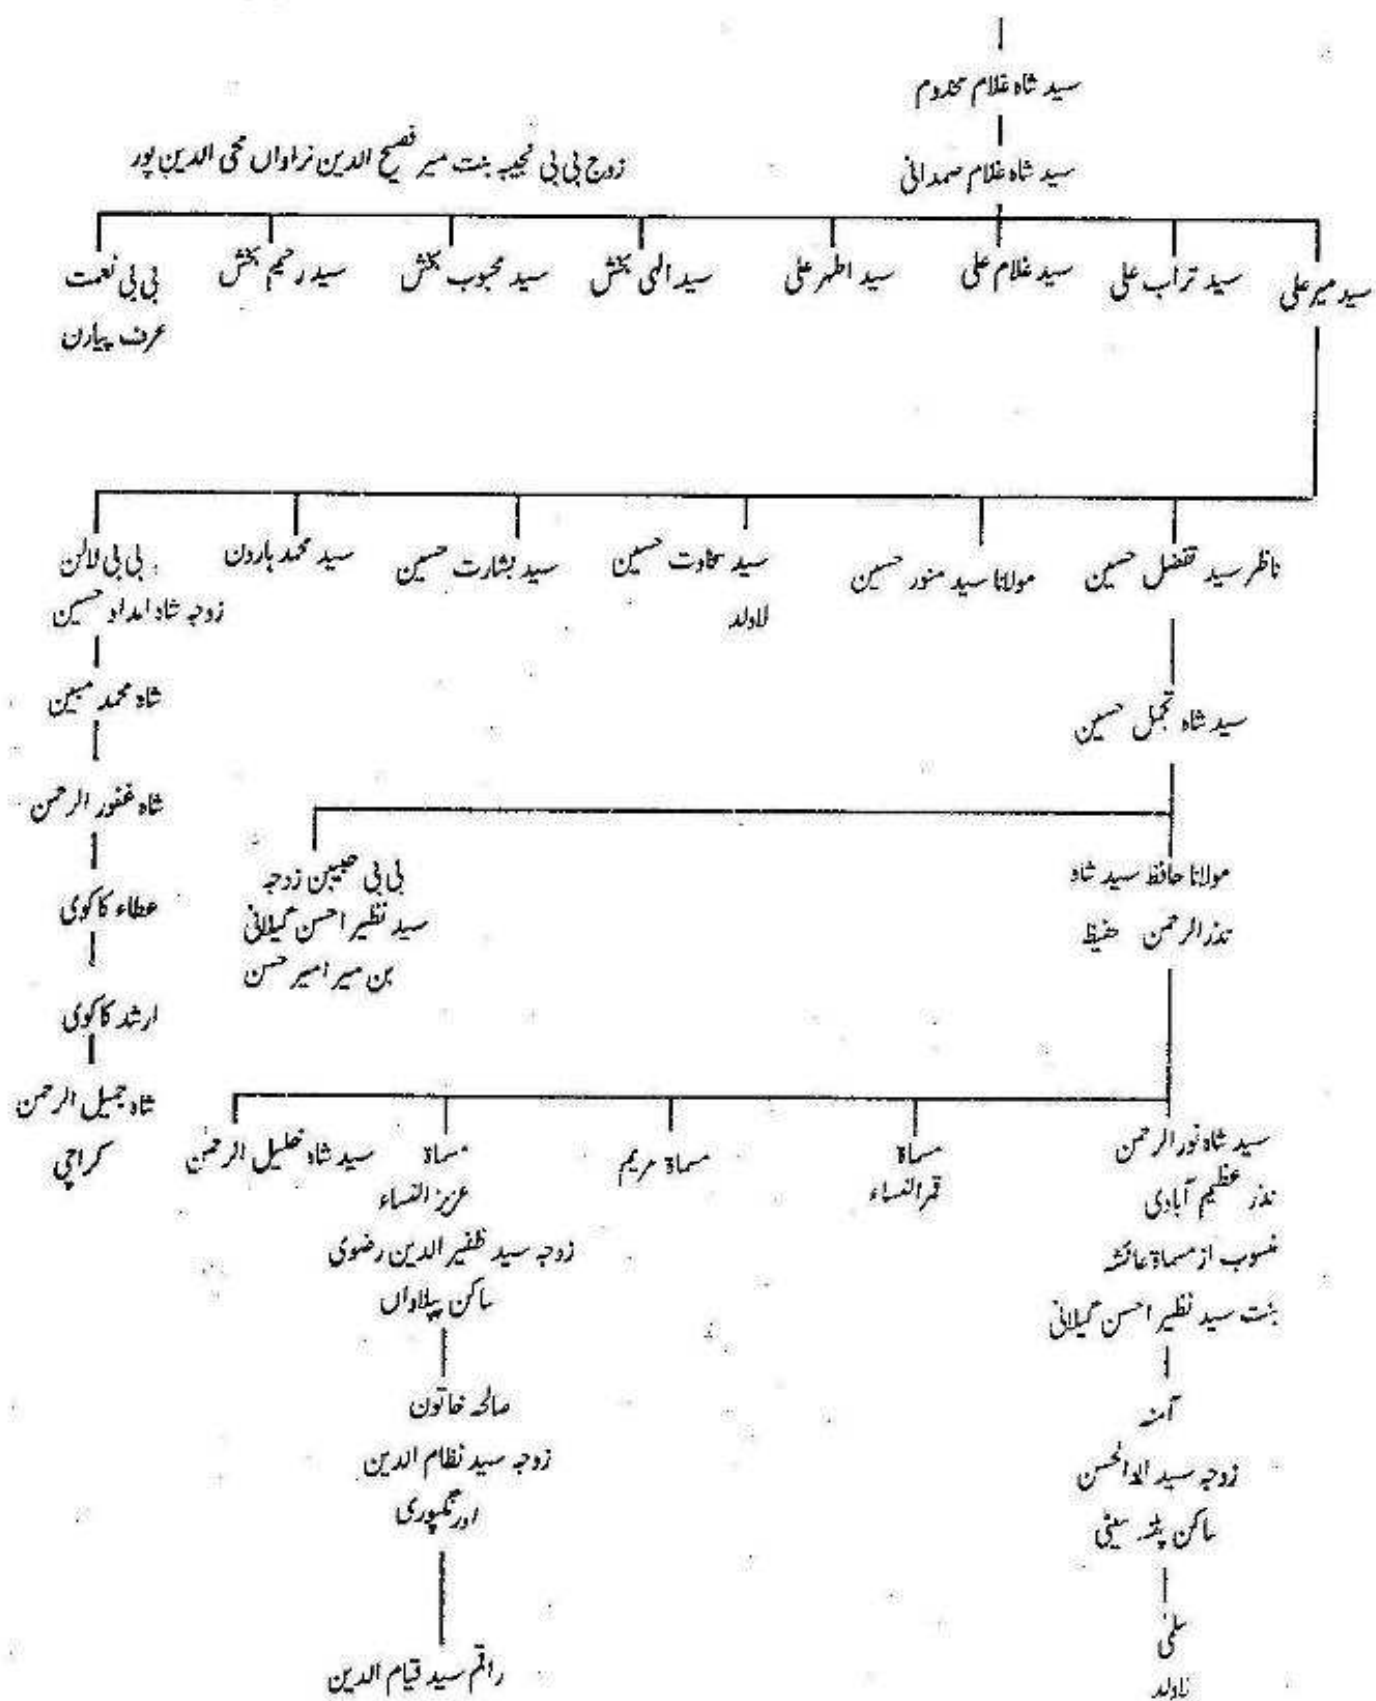 سید شاہ غلام مخدوم
سید شاہ غلام صمدانی
زوج بی بی نجیبہ بنت میر فصیح الدین نراواں محی الدین پور
سید میر علی
سید تراب علی
سید غلام علی
سید اطہر علی
سید الہی بخش
سید محبوب بخش
سید رحیم بخش
بی بی نعمت
عرف پیارن
ناظر سید تفضل حسین
مولانا سید منور حسین
سید سخاوت حسین
لاولد
سید بشارت حسین
سید محمد ہارون
بی بی لالن
زوجہ شاہ امداد حسین
شاہ محمد مبین
شاہ غفور الرحمن
عطاء کاکوی
ارشد کاکوی
شاہ جمیل الرحمن
کراچی
سید شاہ تجمل حسین
مولانا حافظ سید شاہ
نذر الرحمن حفیظ
بی بی حبیبن زوجہ
سید نظیر احسن گیلانی
بن میر امیر حسن
سید شاہ نور الرحمن
نذر عظیم آبادی
منسوب از مسماۃ عائشہ
بنت سید نظیر احسن گیلانی
آمنہ
زوجہ سید ابوالحسن
ساکن پٹنہ سیٹی
سلمی
لاولد
مسماۃ
قمر النساء
مسماۃ مریم
مسماۃ
عزیز النساء
زوجہ سید ظفیر الدین رضوی
ساکن پیلاواں
صالحہ خاتون
زوجہ سید نظام الدین
اورنگپوری
راقم سید قیام الدین
سید شاہ خلیل الرحمن